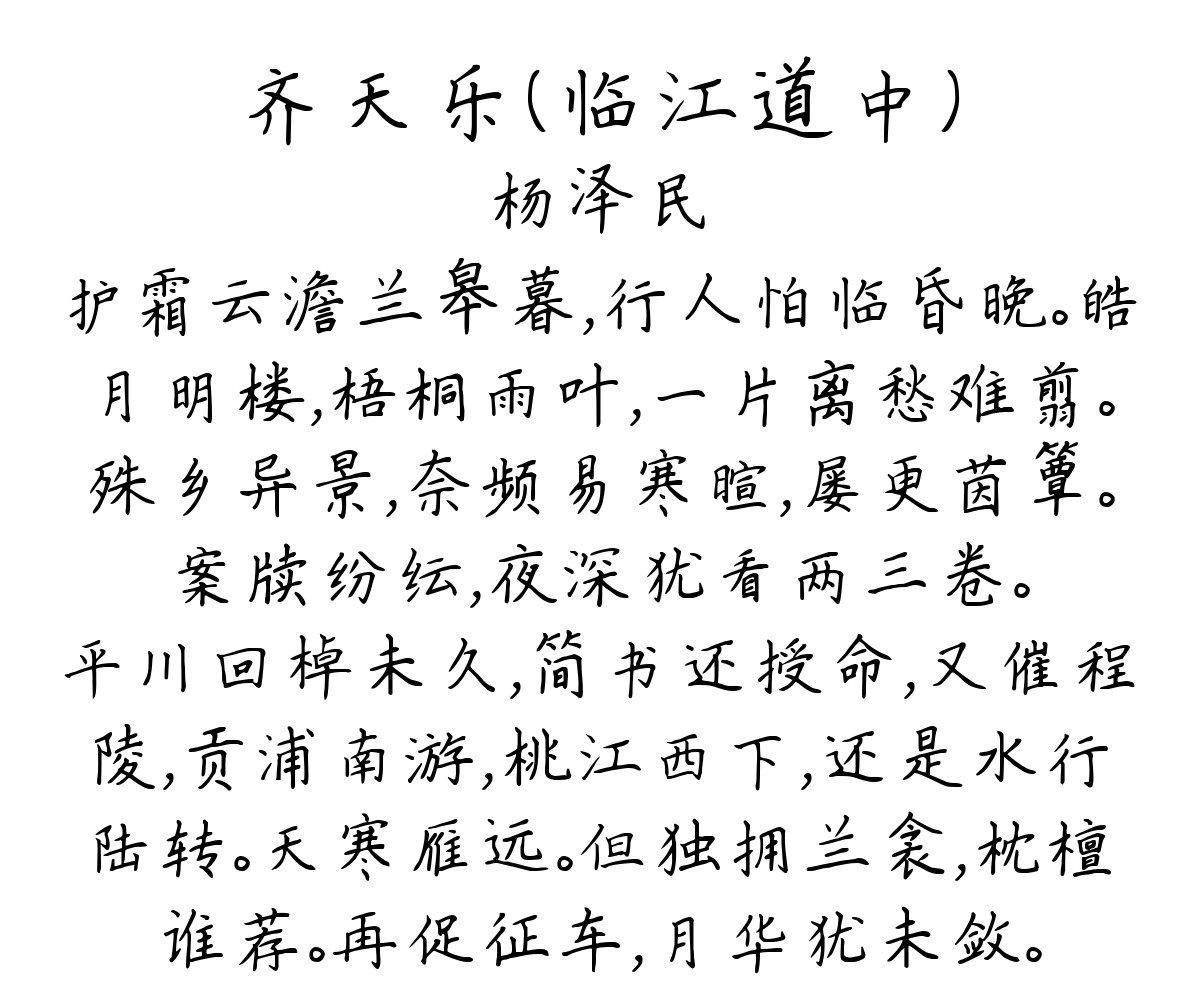 齐天乐(临江道中)
杨泽民
护霜云澹兰皋暮,行人怕临昏晚。皓
月明楼,梧桐雨叶,一片离愁难翦。
殊乡异景,奈频易寒暄,屡更茵簟。
案牍纷纭,夜深犹看两三卷。
平川回棹未久,简书还授命,又催程
陵,贡浦南游,桃江西下,还是水行
陆转。天寒雁远。但独拥兰衾,枕檀
谁荐。再促征车,月华犹未敛。